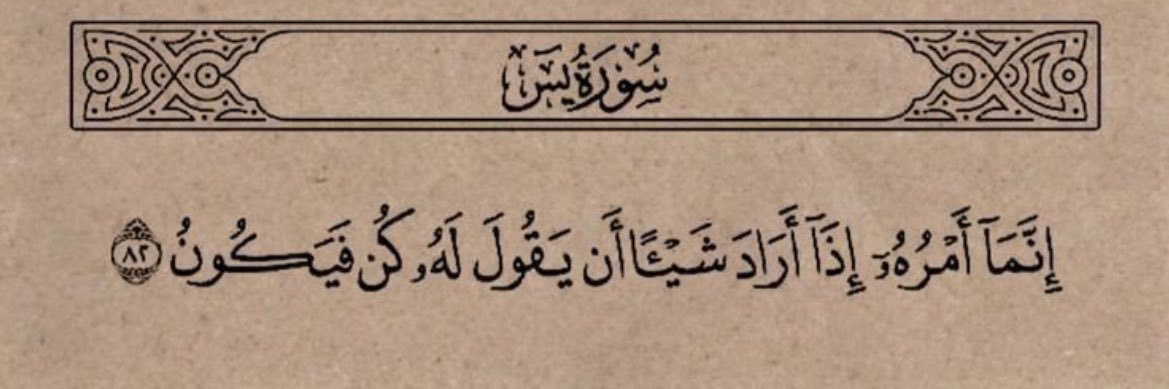 سُورَةُ يسٓ
إِنَّمَآ أَمْرُهُۥٓ إِذَآ أَرَادَ شَيْـًٔا أَن يَقُولَ لَهُۥ كُن فَيَكُونُ ٨٢